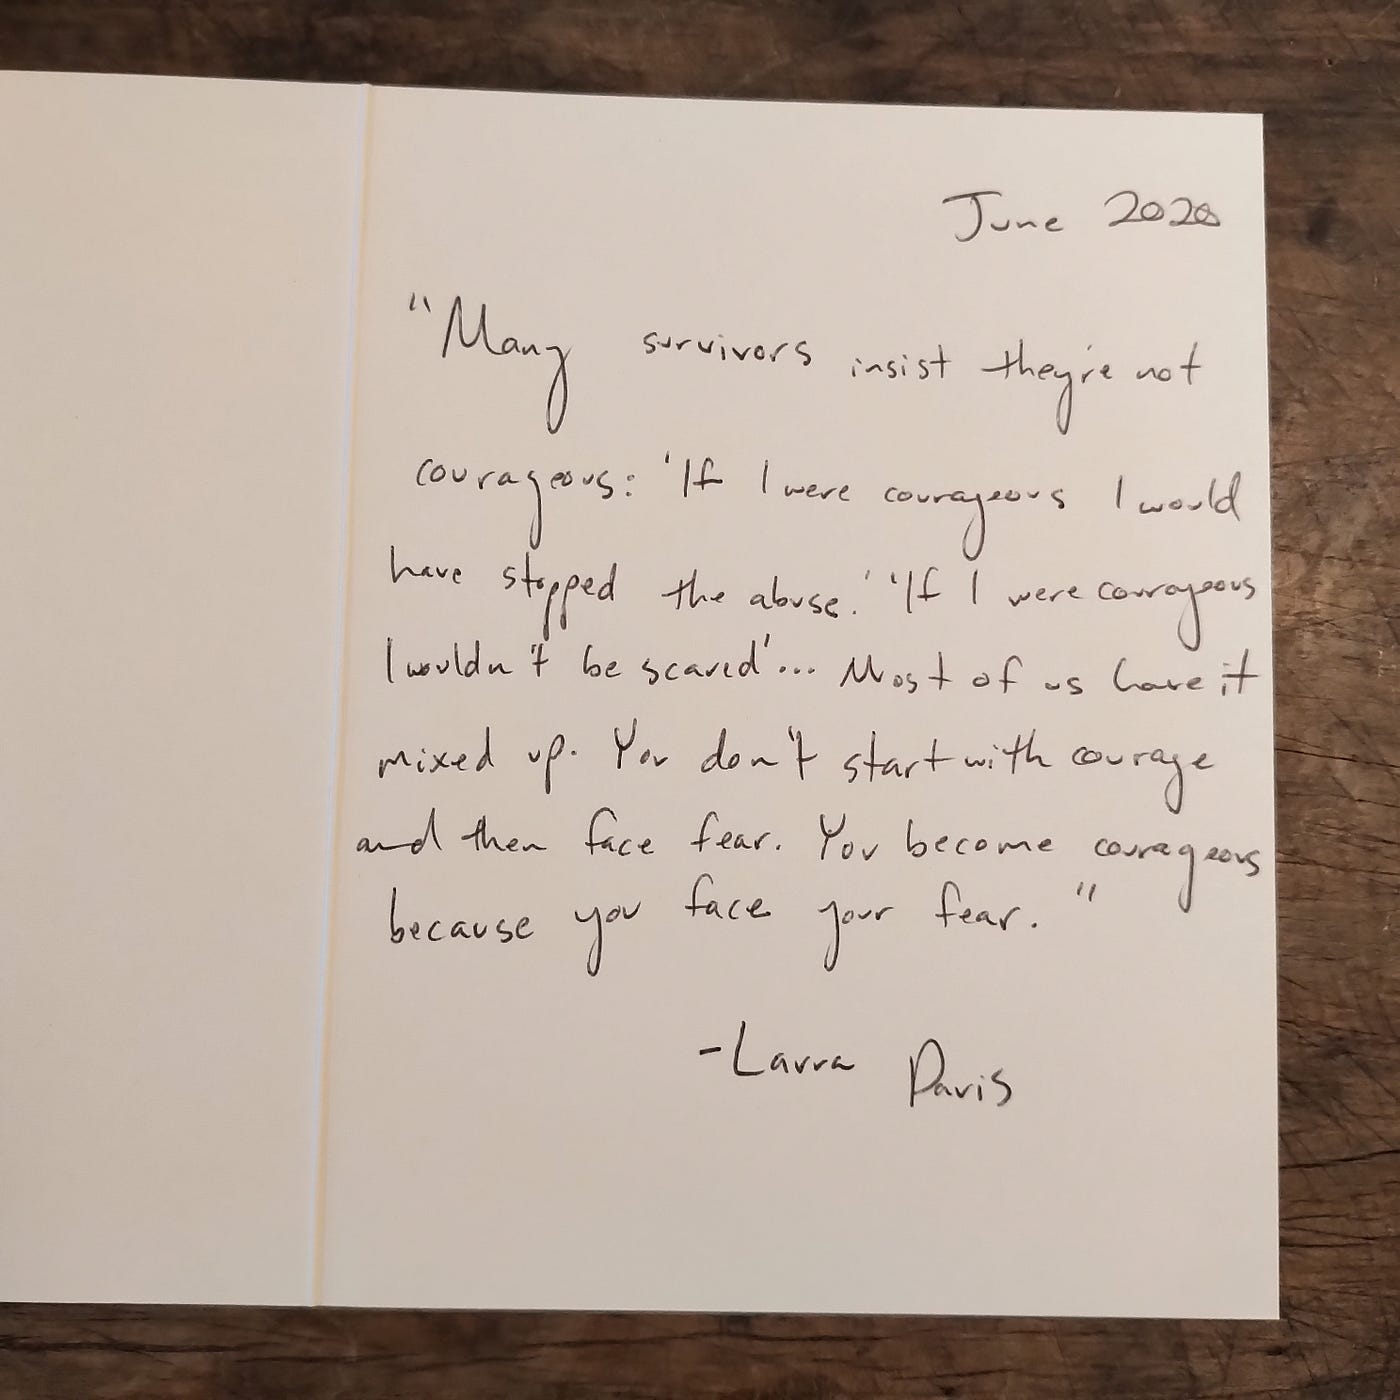 June 2020
"Many survivors insist they're not
courageous: 'If I were courageous I would
have stopped the abuse.' 'If I were courageous
I wouldn't be scared'... Most of us have it
mixed up. You don't start with courage
and then face fear. You become courageous
because you face your fear."
-Laura Davis